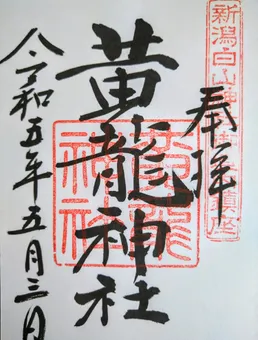 新潟白山神社鎮座
奉拝
黄龍神社
令和五年五月三日